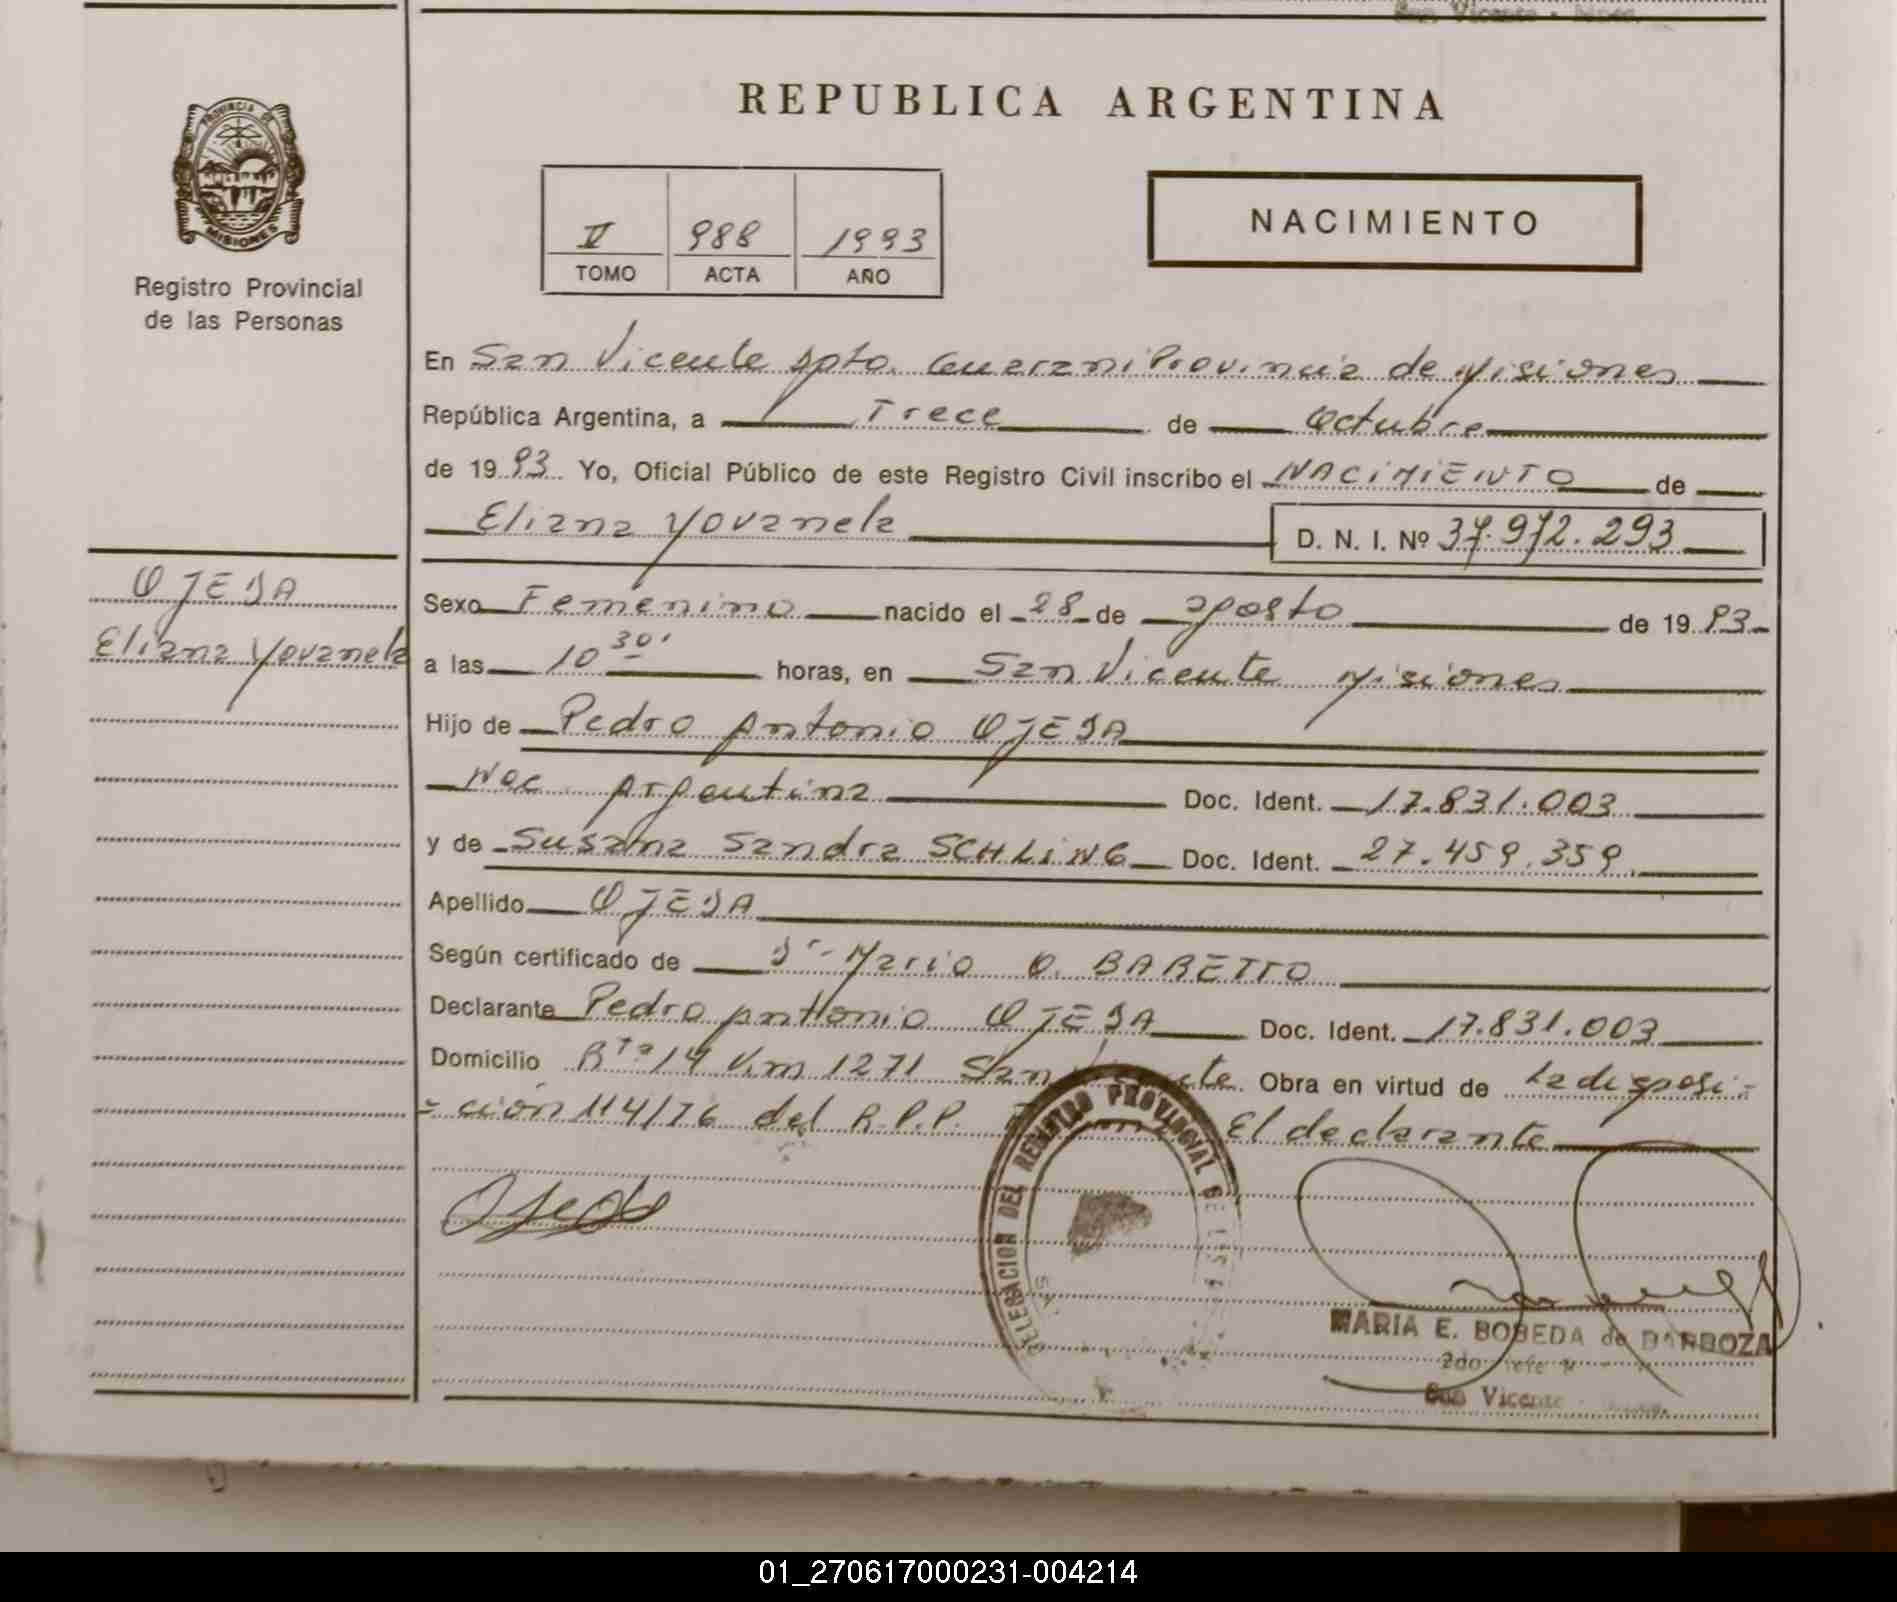 San Vicente
REPUBLICA ARGENTINA
PROVINCIA DE
MISIONES
Registro Provincial
de las Personas
V 988 1993
TOMO ACTA AÑO
NACIMIENTO
En San Vicente Dpto. Guarani Provincia de Misiones
República Argentina, a Trece de Octubre
de 1993 Yo, Oficial Público de este Registro Civil inscribo el NACIMIENTO de
Eliana Yovanela D. N. I. Nº 37.972.293
OJEDA
Eliana Yovanela
Sexo Femenino nacido el 28 de agosto de 1993
a las 10 30' horas, en San Vicente Misiones
Hijo de Pedro Antonio OJEDA
Nac. Argentina Doc. Ident. 17.831.003
y de Susana Sandra SCHLING Doc. Ident. 27.459.359
Apellido OJEDA
Según certificado de Dr. Mario O. BARETTO
Declarante Pedro Antonio OJEDA Doc. Ident. 17.831.003
Domicilio Rta 14 Km 1271 San Vicente. Obra en virtud de la disposi-
ción 114/76 del R.P.P. El declarante
Ojeda
DELEGACION DEL REGISTRO PROVINCIAL DE LAS P
MARIA E. BOBEDA de BARBOZA
2do Jefe
San Vicente
01_270617000231-004214